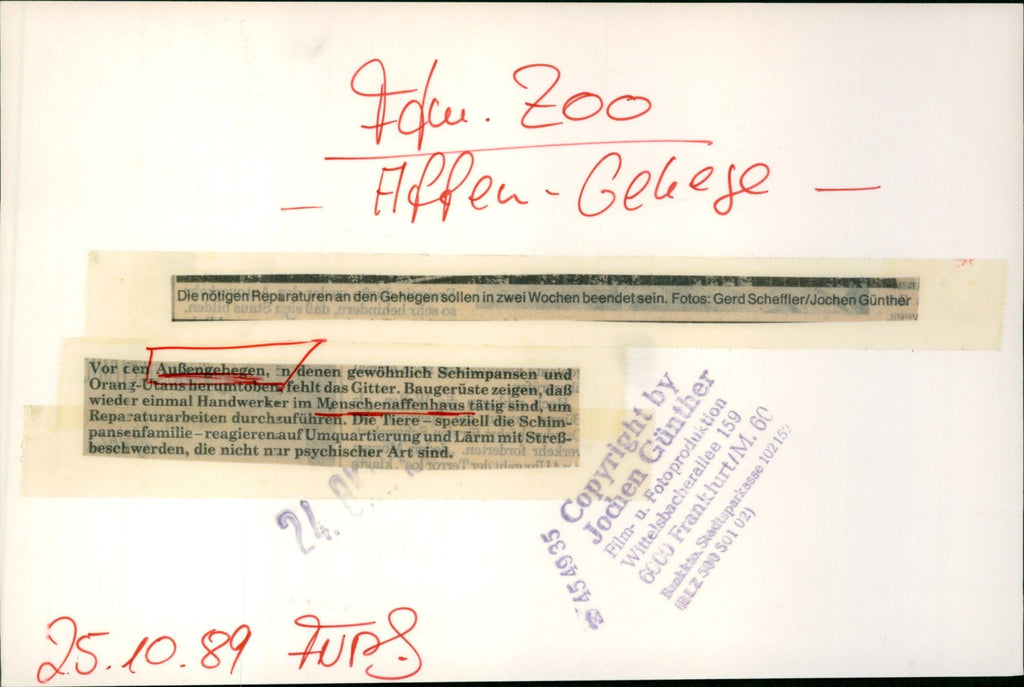 Zoo
— Affen-Gehege —
Die nötigen Reparaturen an den Gehegen sollen in zwei Wochen beendet sein. Fotos: Gerd Scheffler/Jochen Günther
so sehr behindern, daß sich Staus bilden,
Vor den Außengehegen, in denen gewöhnlich Schimpansen und
Orang-Utans herumtoben, fehlt das Gitter. Baugerüste zeigen, daß
wieder einmal Handwerker im Menschenaffenhaus tätig sind, um
Reparaturarbeiten durchzuführen. Die Tiere – speziell die Schim-
pansenfamilie – reagieren auf Umquartierung und Lärm mit Streß-
beschwerden, die nicht nur psychischer Art sind.
24.
Copyright by
Jochen Günther
Film- u. Fotoproduktion
Wittelsbacherallee 159
6000 Frankfurt/M. 60
Bankkto. Stadtsparkasse 102152
(BLZ 500 501 02)
☎ 45 49 35
25.10.89